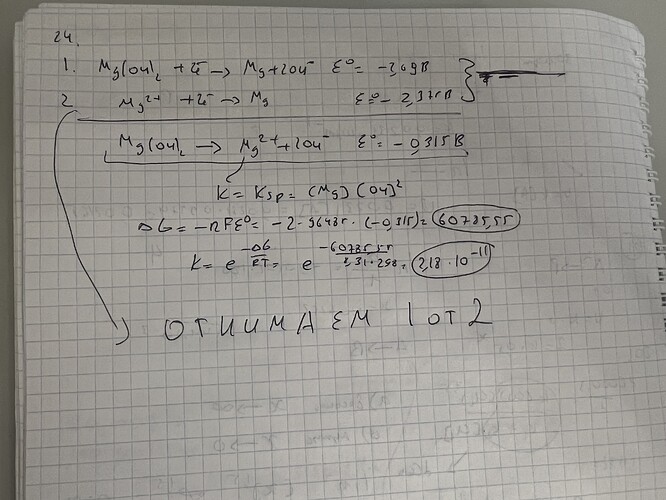 24.
1. Mg(OH)₂ + 2ē → Mg + 2OH⁻ ε° = -2,69В
2 Mg²⁺ + 2ē → Mg ε° = -2,375В
Mg(OH)₂ → Mg²⁺ + 2OH⁻ ε° = -0,315В
K = Ksp = (Mg) (OH)²
ΔG = -nFε° = -2 · 96485 · (-0,315) = 60785,55
K = e^(-ΔG/RT) = e^(-60785,55/8,31·298) = 2,18 · 10⁻¹¹
ОТНИМАЕМ 1 ОТ 2